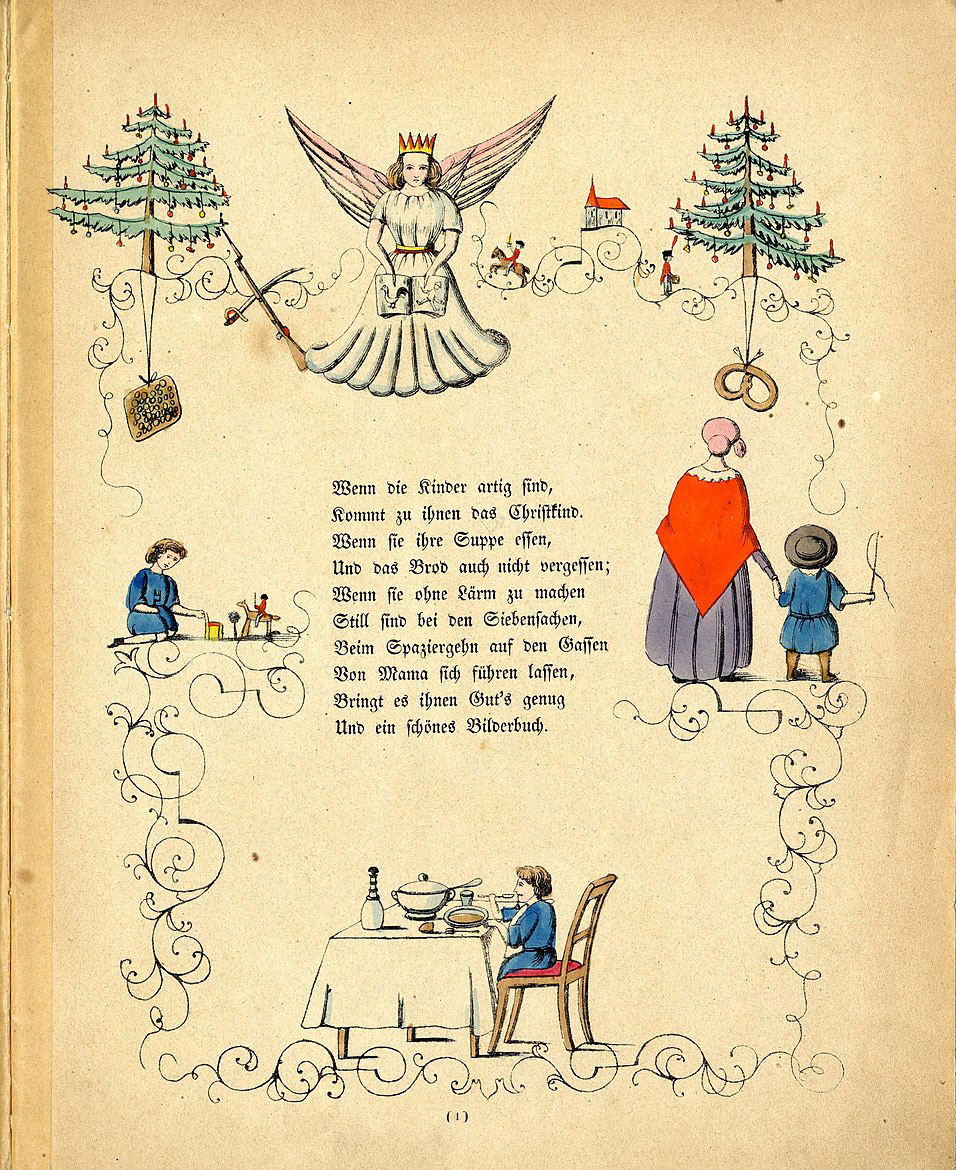 Wenn die Kinder artig sind,
Kommt zu ihnen das Christkind.
Wenn sie ihre Suppe essen,
Und das Brod auch nicht vergessen;
Wenn sie ohne Lärm zu machen
Still sind bei den Siebensachen,
Beim Spaziergehn auf den Gassen
Von Mama sich führen lassen,
Bringt es ihnen Gut's genug
Und ein schönes Bilderbuch.
(1)